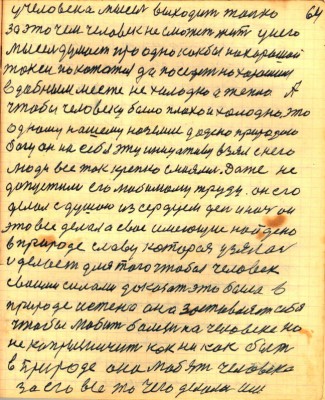 64
у человека мысль выходит только
за это чем человек не сможет жить у него
мысль думает про одно как бы на хорошой
такси покататься да посидеть на хорошим
удобным месте не холодно а тепло А
чтобы человеку было плохо и холодно, это
одному нашему на земли дадено природою
богу он на себя эту инициативу взял с него
люди все так крепко смеялись Даже не
допустили его любимому труду. он его
делал с душою и сердцем ден и нач он
это все делал а свое имеющие найдено
в природе славу которая узялас
и делает для того чтобы человек
своими силами доказат это была в
природе истена она заставляет себя
чтобы любит болящего человека но
не кал как ни как быт
в Природе она любят человека
за его все то чего делали